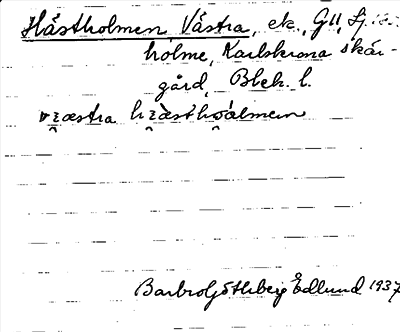 Hästholmen Västra, ek., Gll,
holme, Karlskrona skär-
gård, Blek. l.
vræstra hræsthoalmen
Barbro Götheberg Edlund 1937